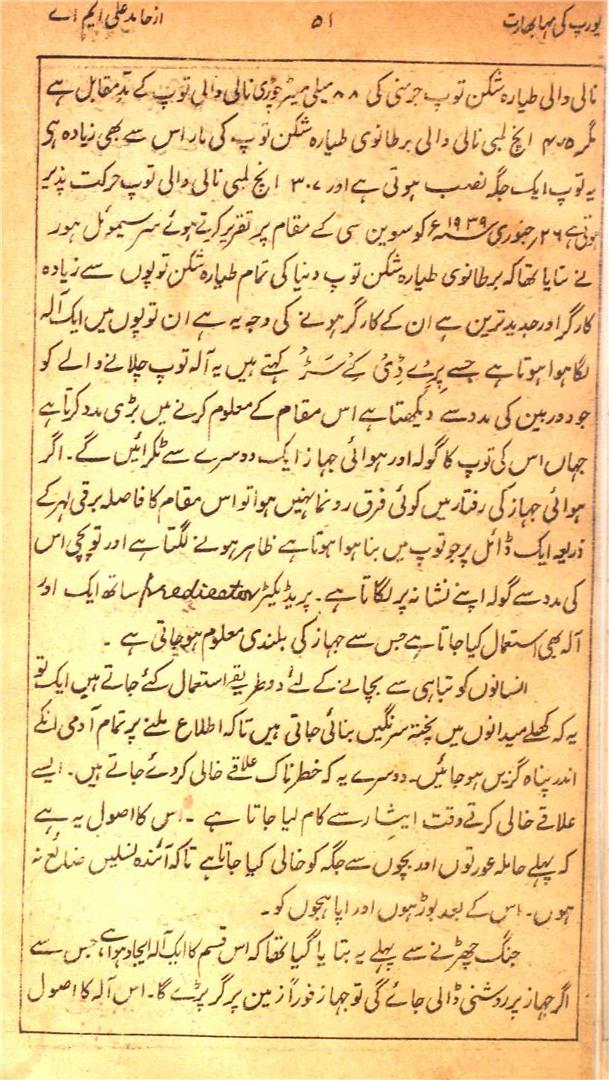 یورپ کی مہابھارت ۵۱ از حامد علی ایم اے
نالی والی طیارہ شکن توپ جرمنی کی ۸۸ ملی میٹر چوڑی نالی والی توپ کے مدِ مقابل ہے
مگر ۴.۵ انچ لمبی نالی والی برطانوی طیارہ شکن توپ کی مار اس سے بھی زیادہ ہی
یہ توپ ایک جگہ نصب ہوتی ہے اور ۳.۷ انچ لمبی نالی والی توپ حرکت پذیر
ہوتی ہے ۲۶ جنوری ۱۹۳۹ء کو سوین سی کے مقام پر تقریر کرتے ہوئے سر سیموئل ہور
نے بتایا تھا کہ برطانوی طیارہ شکن توپ دنیا کی تمام طیارہ شکن توپوں سے زیادہ
کارگر اور جدید ترین ہے ان کے کارگر ہونے کی وجہ یہ ہے ان توپوں میں ایک آلہ
لگا ہوا ہوتا ہے جسے پرے ڈی کے ٹر کہتے ہیں یہ آلہ توپ چلانے والے کو
جو دوربین کی مدد سے دیکھتا ہے اس مقام کے معلوم کرنے میں بڑی مدد کرتا ہے
جہاں اس کی توپ کا گولہ اور ہوائی جہاز ایک دوسرے سے ٹکرائیں گے۔ اگر
ہوائی جہاز کی رفتار میں کوئی فرق رونما نہیں ہوا تو اس مقام کا فاصلہ برقی لہر کے
ذریعہ ایک ڈائل پر جو توپ میں بنا ہوا ہوتا ہے ظاہر ہونے لگتا ہے اور توپچی اس
کی مدد سے گولہ اپنے نشانہ پر لگاتا ہے۔ پریڈیکٹر Predicator ساتھ ایک اور
آلہ بھی استعمال کیا جاتا ہے جس سے جہاز کی بلندی معلوم ہو جاتی ہے۔
انسانوں کو تباہی سے بچانے کے لئے دو طریقے استعمال کئے جاتے ہیں ایک تو
یہ کہ کھلے میدانوں میں پختہ سرنگیں بنائی جاتی ہیں تاکہ اطلاع ملنے پر تمام آدمی انکے
اندر پناہ گزیں ہو جائیں۔ دوسرے یہ کہ خطرناک علاقے خالی کر دئے جاتے ہیں۔ ایسے
علاقے خالی کرتے وقت ایثار سے کام لیا جاتا ہے۔ اس کا اصول یہ ہے
کہ پہلے حاملہ عورتوں اور بچوں سے جگہ کو خالی کیا جاتا ہے تاکہ آئندہ نسلیں ضائع نہ
ہوں۔ اس کے بعد بوڑھوں اور اپاہجوں کو۔
جنگ چھڑنے سے پہلے یہ بتایا گیا تھا کہ اس قسم کا ایک آلہ ایجاد ہوا ہے، جس سے
اگر جہاز پر روشنی ڈالی جائے گی تو جہاز فوراً زمین پر گر پڑے گا۔ اس آلہ کا اصول